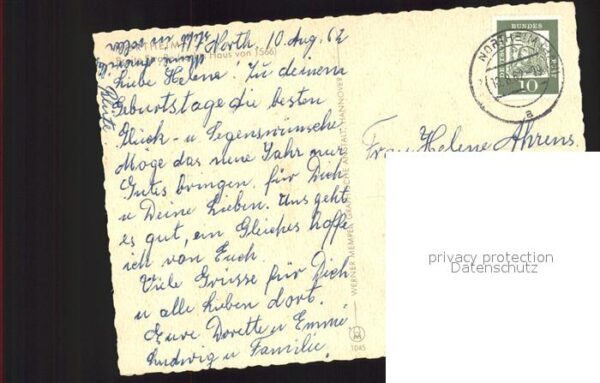 North, 10. Aug. 62
Liebe Helene! Zu deinem
Geburtstage die besten
Glück- u Segenswünsche
Möge das neue Jahr nur
Gutes bringen für Dich
u Deine Lieben. Uns geht
es gut, ein Gleiches hoffe
ich von Euch.
Viele Grüsse für Dich
u alle lieben dort.
Eure Dorette u Emmi
Ludwig u Familie.
NORTHEIM
Haus von 1566)
WERNER MEMPER GRAPHISCHE ANSTALT, HANNOVER
1045
DEUTSCHE BUNDESPOST
10
NORTHEIM
a
Frau Helene Ahrens
privacy protection
Datenschutz